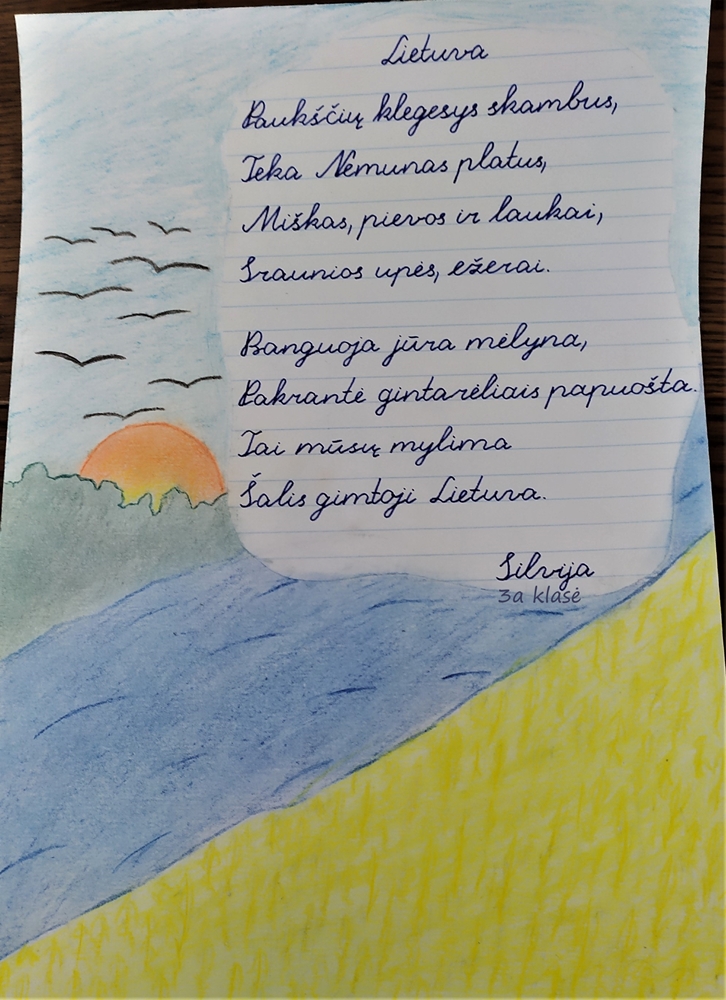 Lietuva
Paukščių klegesys skambus,
Teka Nemunas platus,
Miškas, pievos ir laukai,
Sraunios upės, ežerai.
Banguoja jūra mėlyna,
Pakrantė gintarėliais papuošta.
Tai mūsų mylima
Šalis gimtoji Lietuva.
Silvija
3a klasė